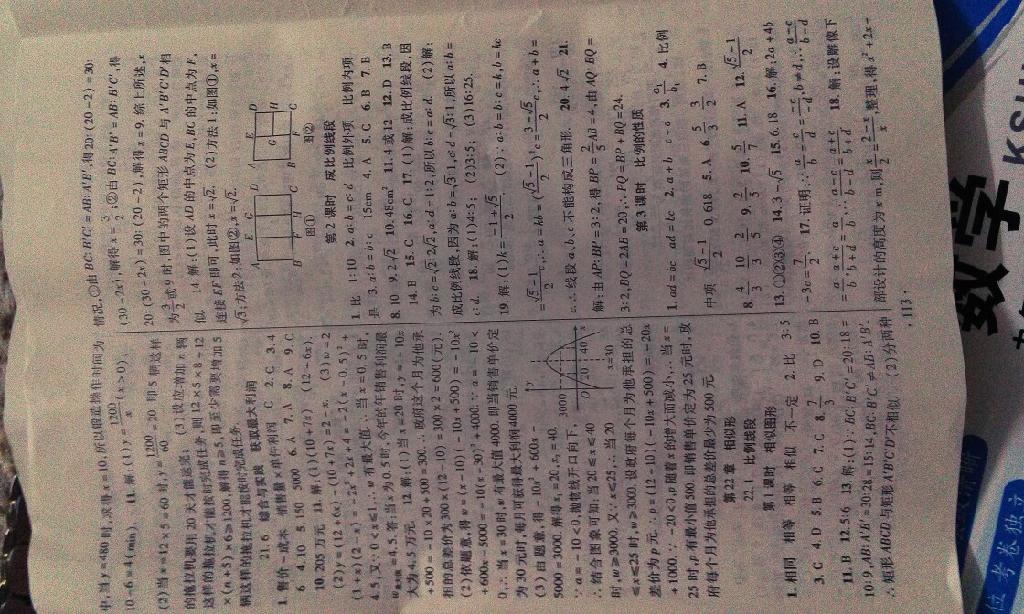 中,当 y=480 时,求得 x=10,所以服药操作时间为
10-6=4(min). 11. 解:(1) y=1200/x (x>0).
(2)当 x=12×5=60 时,y=1200/60=20 即 5 辆这样
的拖拉机要用 20 天才能运完; (3)设增加 n 辆
这样的拖拉机才能按时完成任务,则 12×5×8+12
×(n+5)×6≥1200,解得 n≥5,即至少需要增加 5
辆这样的拖拉机才能按时完成任务.
21.6 综合与实践 获取最大利润
1. 售价-成本 销售量×单件利润 2. C 3. 4
6 4. 10 5. 150 5000 6. A 7. A 8. A 9. C
10. 205 万元 11. 解:(1)(10+7x) (12+6x).
(2) y=(12+6x)-(10+7x)=2-x. (3) w=2
(1+x)(2-x)=-2x²+2x+4=-2(x-0.5)²+
4.5,又∵0<x≤1,∴w 有最大值.∴当 x=0.5 时,
w最大=4.5.答:当 x 为 0.5 时,今年的年销售利润最
大为 4.5 万元. 12. 解:(1)当 x=20 时,y=-10x
+500=-10×20+500=300.∴政府这个月为他承
担的总差价为 300×(12-10)=300×2=600(元).
(2)依题意,得 w=(x-10)(-10x+500)=-10x²
+600x-5000=-10(x-30)²+4000.∵a=-10<
0,∴当 x=30 时,w 有最大值 4000.即当销售单价定
为 30 元时,每月可获得最大利润 4000 元.
(3)由题意,得-10x²+600x-
5000=3000.解得x₁=20,x₂=40.
∵a=-10<0,抛物线开口向下,
∴结合图象可知:当 20≤x≤40
时,w≥3000.又∵x≤25,∴当 20
≤x≤25 时,w≥3000.设政府每个月为他承担的总
差价为 p 元.∴p=(12-10)(-10x+500)=-20x
+1000.∵-20<0,p 随着 x 的增大而减小.∴当 x=
25 时,p 有最小值 500.即销售单价定为 25 元时,政
府每个月为他承担的总差价最少为 500 元
y
3000
O
20
40
x
x=30
第 22 章 相似形
22.1 比例线段
第 1 课时 相似图形
1. 相同 相等 相等 相似 不一定 2. 比 3:5
3. C 4. D 5. B 6. C 7. C 8. 7/3 9. D 10. B
11. B 12. 5:6 13. 解:(1)∵BC:B′C′=20:18=
10:9,AB:A′B′=30:28=15:14,BC:B′C′≠AB:A′B′,
∴矩形 ABCD 与矩形 A′B′C′D′不相似. (2)分两种
情况,①由 BC:B′C′=AB:A′B′,得 20:(20-2)=30:
(30-2x),解得 x=3/2;②由 BC:A′B′=AB:B′C′,得
20:(30-2x)=30:(20-2),解得 x=9.综上所述,x
为3/2或 9 时,图中的两个矩形 ABCD 与 A′B′C′D′相
似 14. 解:(1)设 AD 的中点为 E,BC 的中点为 F,
连接 EF 即可,此时 x=√2. (2)方法 1:如图①,x=
√3;方法 2:如图②,x=√2.
A E G D
B F H C
图①
A E D
G H
B F C
图②
第 2 课时 成比例线段
1. 比 1:10 2. a:b=c:d 比例外项 比例内项
是 3. a:b=b:c 15cm 4. A 5. C 6. B 7. B
8. 10 9. 2√2 10. 48cm² 11. 4 或 12 12. D 13. B
14. B 15. C 16. C 17. (1)解:成比例线段,因
为 b:c=√2:2√2,a:d=1:2,所以 b:c=a:d. (2)解:
成比例线段,因为 a:b=√3:1,c:d=√3:1,所以 a:b=
c:d. 18. 解:(1)4:5; (2)3:5; (3)16:25.
19. 解:(1)k=(-1+√5)/2 (2)∵a:b=b:c=k,b=kc
=(√5-1)/2 c,∴a=kb=((√5-1)/2)²c=(3-√5)/2 c,∴a+b=
c.∴线段 a、b、c 不能构成三角形. 20. 4√2 21.
解:由 AP:BP=3:2,得 BP=2/5 AB=4,由 AQ:BQ=
3:2,BQ=2AB=20,∴PQ=BP+BQ=24.
第 3 课时 比例的性质
1. ad=bc ad=bc 2. a+b c-d 3. a₁/b₁ 4. 比例
中项 (√5-1)/2 0.618 5. A 6. 5/3 3/2 7. B
8. 4/3 10/3 2/5 9. 2/5 10. 5/7 11. A 12. (√5-1)/2
13. ①②③④ 14. 3-√5 15. 6.18 16. 解:2a+4b
-3c=7/2. 17. 证明:∵a/b=c/d=-c/-d,b≠d,∴(a-c)/(b-d)
=a/b,(a+c)/(b+d)=a/b,∴(a-c)/(b-d)=(a+c)/(b+d) 18. 解:设雕像下
部设计的高度为 x m,则x/2=(2-x)/x,整理,得 x²+2x-
·113·
数学
位考卷独立